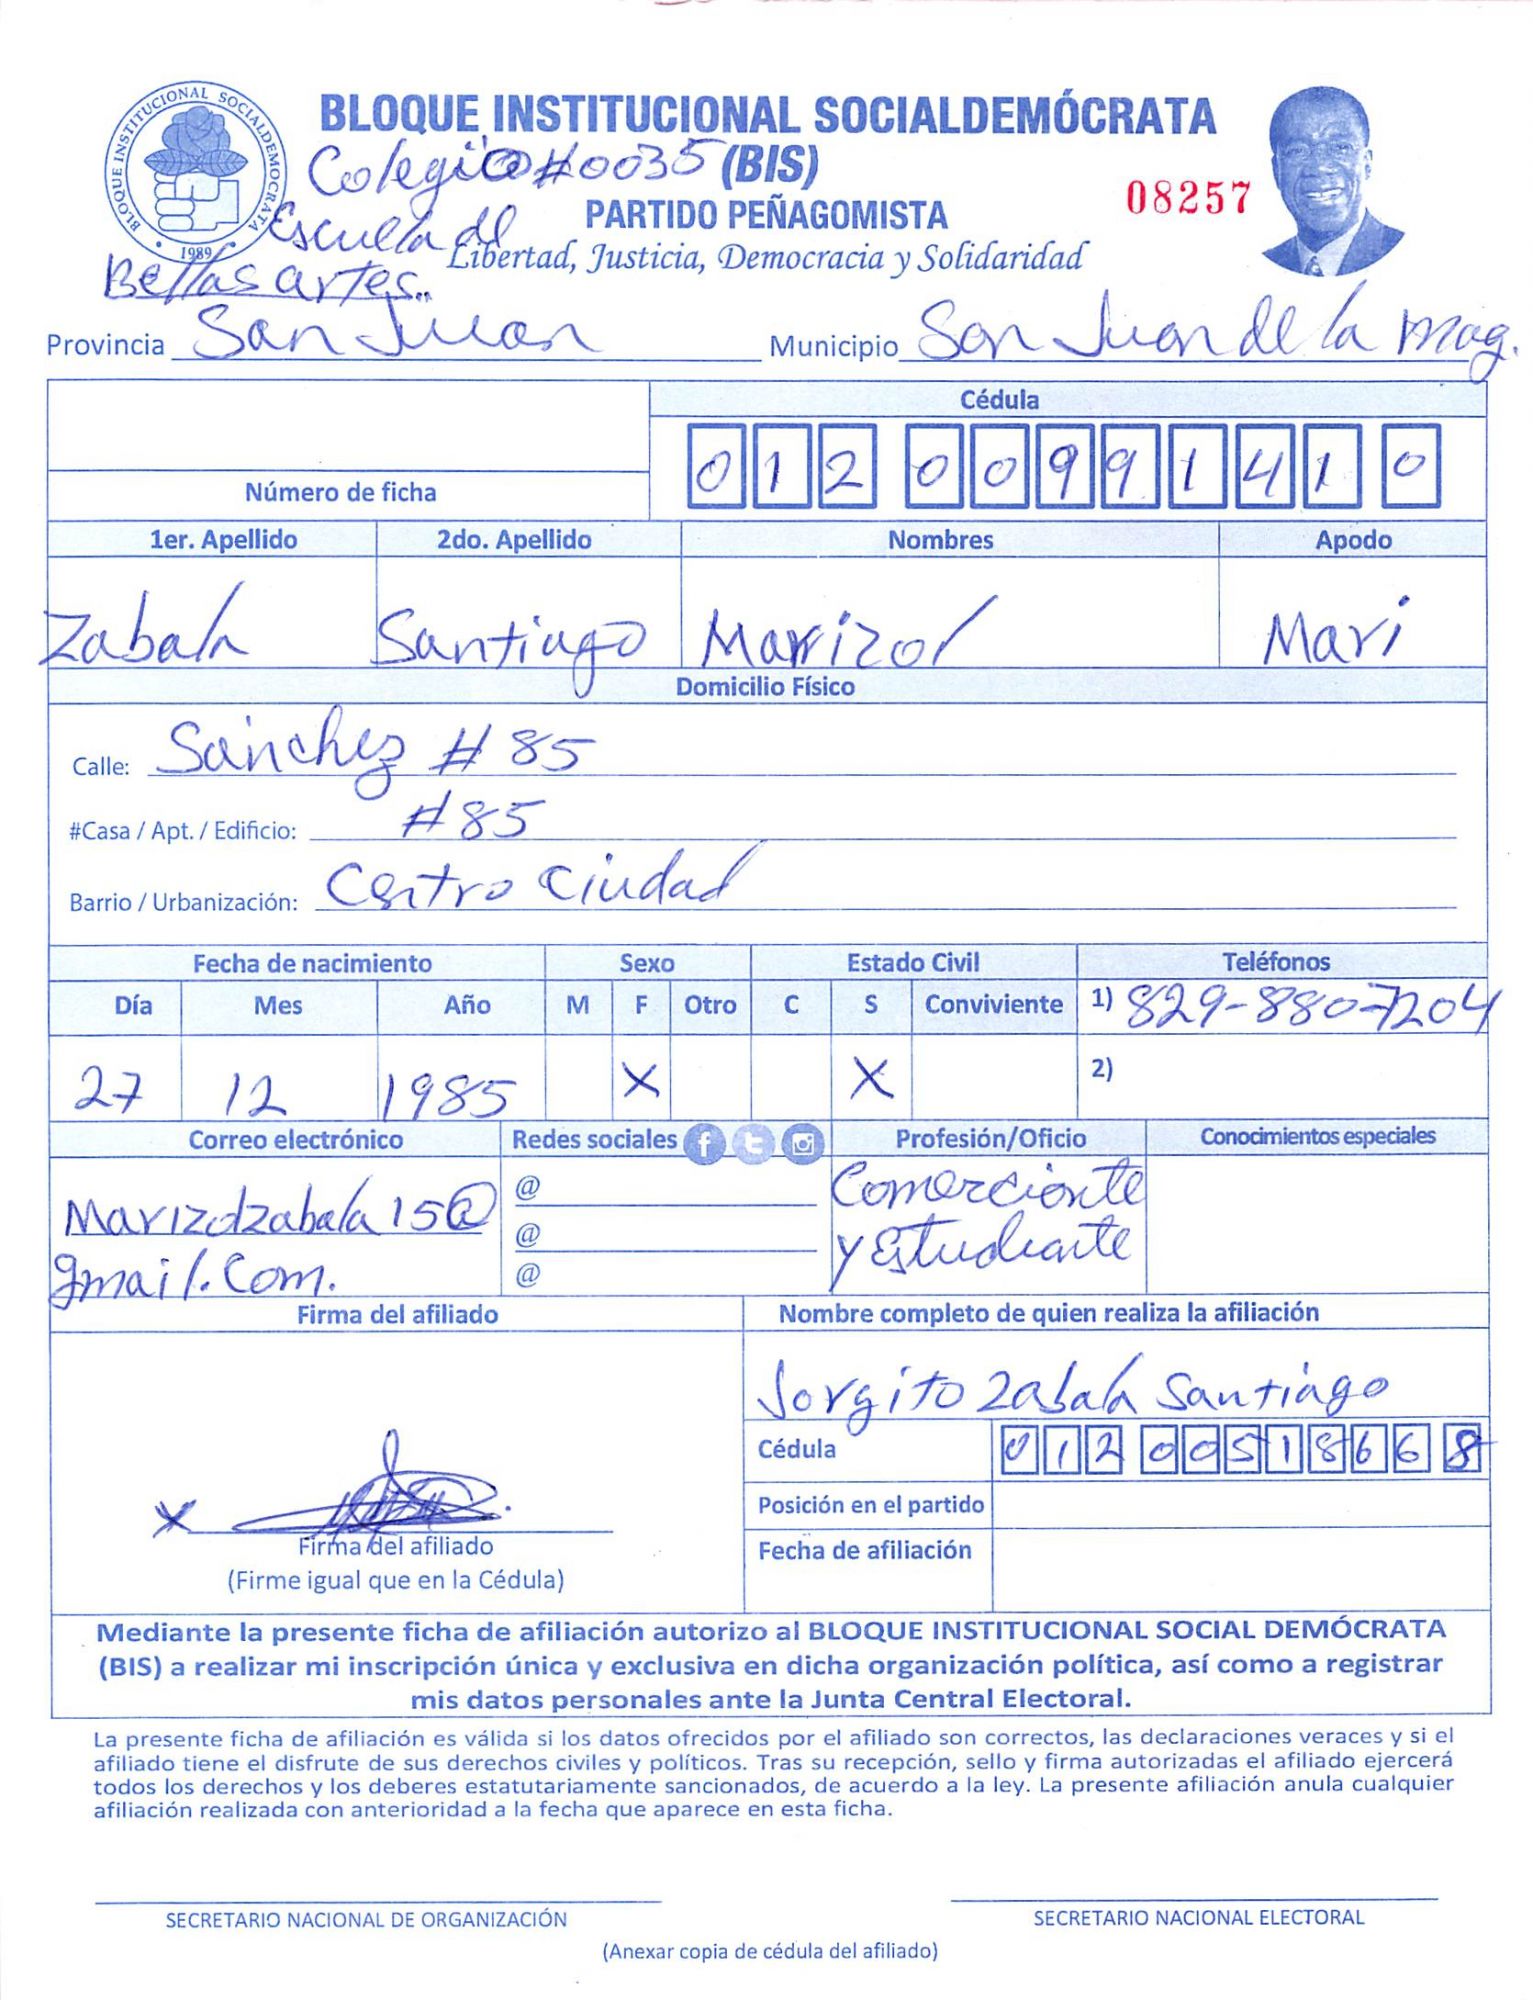 BLOQUE INSTITUCIONAL SOCIALDEMOCRATA
1989
BLOQUE INSTITUCIONAL SOCIALDEMÓCRATA
(BIS)
Colegio #0035
PARTIDO PEÑAGOMISTA
08257
Escuela de
Libertad, Justicia, Democracia y Solidaridad
Bellas artes..
Provincia San Juan Municipio San Juan de la Mag.
Cédula
0 1 2 0 0 9 9 1 4 1 0
Número de ficha
1er. Apellido 2do. Apellido Nombres Apodo
Zabala Santiago Marizol Mari
Domicilio Físico
Calle: Sánchez #85
#Casa / Apt. / Edificio: #85
Barrio / Urbanización: Centro Ciudad
Fecha de nacimiento Sexo Estado Civil Teléfonos
Día Mes Año M F Otro C S Conviviente 1) 829-880-7204
27 12 1985 X X 2)
Correo electrónico Redes sociales Profesión/Oficio Conocimientos especiales
Marizolzabala15@ @ Comerciante
gmail.com. @ y Estudiante
@
Firma del afiliado Nombre completo de quien realiza la afiliación
Jorgito Zabala Santiago
Cédula 0 1 2 0 0 5 1 8 6 6 8
Posición en el partido
x
Firma del afiliado Fecha de afiliación
(Firme igual que en la Cédula)
Mediante la presente ficha de afiliación autorizo al BLOQUE INSTITUCIONAL SOCIAL DEMÓCRATA
(BIS) a realizar mi inscripción única y exclusiva en dicha organización política, así como a registrar
mis datos personales ante la Junta Central Electoral.
La presente ficha de afiliación es válida si los datos ofrecidos por el afiliado son correctos, las declaraciones veraces y si el
afiliado tiene el disfrute de sus derechos civiles y políticos. Tras su recepción, sello y firma autorizadas el afiliado ejercerá
todos los derechos y los deberes estatutariamente sancionados, de acuerdo a la ley. La presente afiliación anula cualquier
afiliación realizada con anterioridad a la fecha que aparece en esta ficha.
SECRETARIO NACIONAL DE ORGANIZACIÓN SECRETARIO NACIONAL ELECTORAL
(Anexar copia de cédula del afiliado)